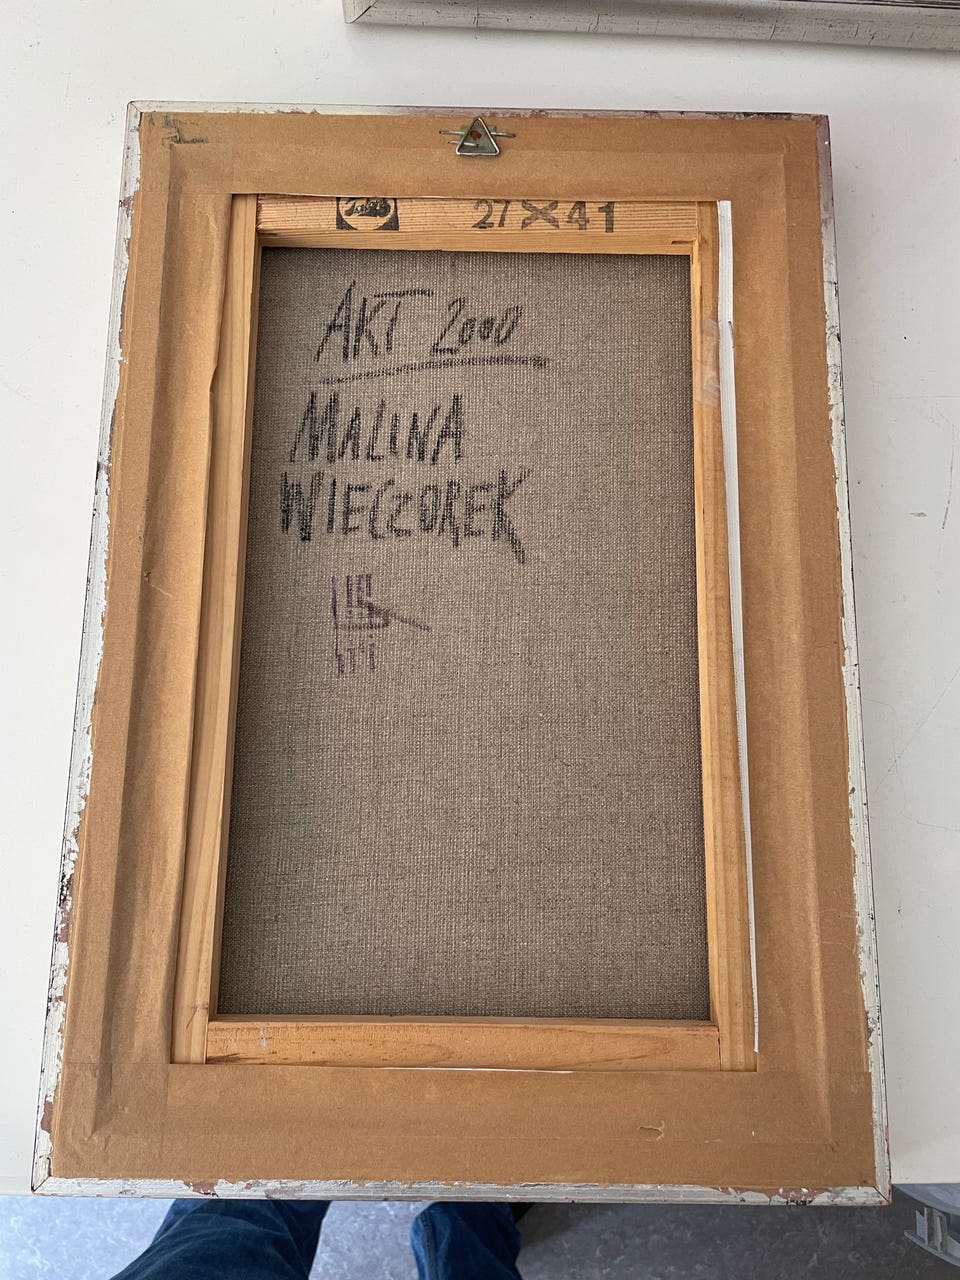 27 X 41
AKT 2000
MALINA
WIECZOREK